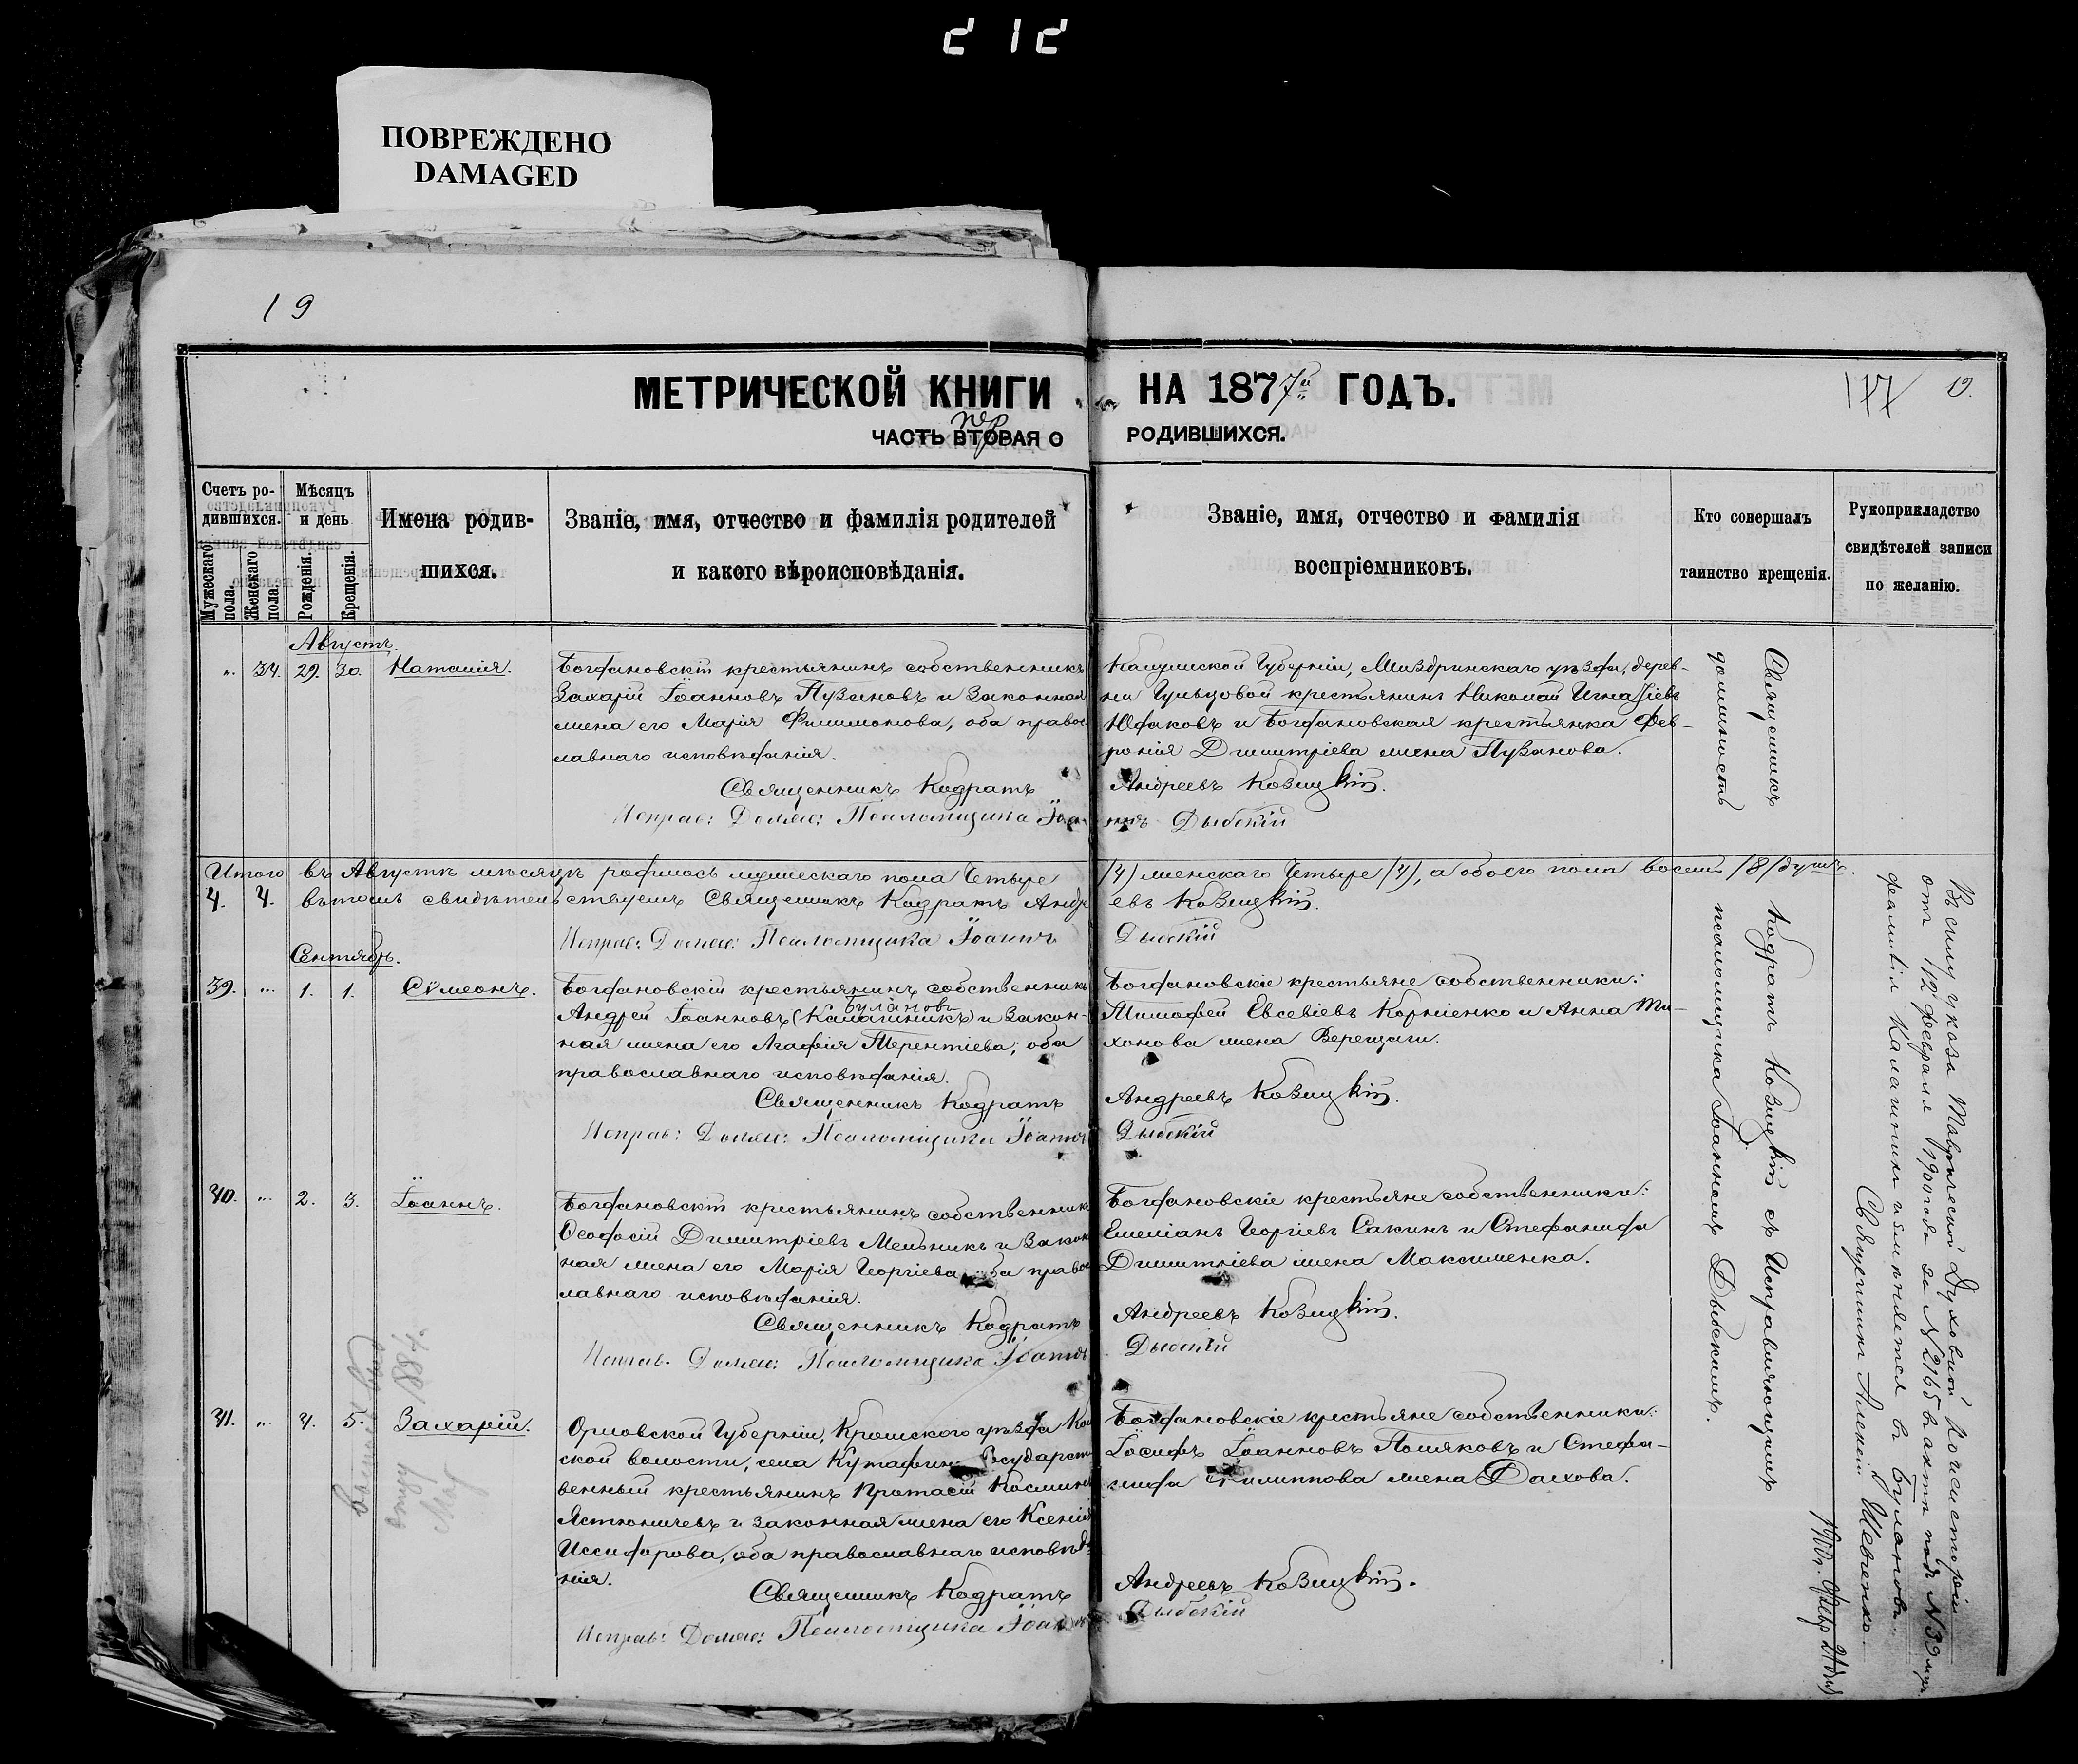 212
ПОВРЕЖДЕНО
DAMAGED
19
МЕТРИЧЕСКОЙ КНИГИ НА 1877й ГОДЪ.
177 19.
ЧАСТЬ ВТОРАЯ О РОДИВШИХСЯ.
Счетъ родившихся.
Мужескаго пола.
Женскаго пола.
Мѣсяцъ и день
Рожденія.
Крещенія.
Имена родив-
шихся.
Званіе, имя, отчество и фамилія родителей
и какого вѣроисповѣданія.
Званіе, имя, отчество и фамилія
воспріемниковъ.
Кто совершалъ
таинство крещенія.
Рукоприкладство
свидѣтелей записи
по желанію.
Августъ.
„ 34. 29. 30. Наталія.
Богдановскій крестьянинъ собственникъ
Захарій Іоанновъ Пузановъ и законная
жена его Марія Филимонова, оба правос-
лавнаго исповѣданія.
Священникъ Кодратъ Андреевъ Козицкій.
Исправ: Должн: Псаломщика Іоаннъ Дыбскій
Калужской Губерніи, уѣзда, дерев-
ни крестьянинъ Николай Игнатіевъ
Юдаковъ и Богдановская крестьянка Фев-
ронія Димитріева жена Пузанова.
Итого въ Августѣ мѣсяцѣ родилось мужескаго пола Четыре /4/ женскаго Четыре /4/, а обоего пола восемь /8/ душъ.
4. 4. въ томъ свидѣтельствуемъ Священникъ Кодратъ Андреевъ Козицкій.
Исправ: Должн: Псаломщика Іоаннъ Дыбскій
Сентябрь.
39. „ 1. 1. Сѵмеонъ.
Богдановскій крестьянинъ собственникъ
Булановъ
Андрей Іоанновъ (Калашникъ) и закон-
ная жена его Агафія Терентіева, оба
православнаго исповѣданія.
Священникъ Кодратъ Андреевъ Козицкій.
Исправ: Должн: Псаломщика Іоаннъ Дыбскій
Богдановскіе крестьяне собственники:
Тимофей Евсевіевъ Корніенко и Анна Ти-
хонова жена Верещаги.
40. „ 2. 3. Іоаннъ.
Богдановскій крестьянинъ собственникъ
Ѳеодосій Димитріевъ Мельникъ и закон
ная жена его Марія Георгіева, оба правос
лавнаго исповѣданія.
Священникъ Кодратъ Андреевъ Козицкій.
Исправ. Должн: Псаломщика Іоаннъ Дыбскій
Богдановскіе крестьяне собственники:
Емеліанъ Георгіевъ Сакинъ и Стефанида
Димитріева жена Максименка.
41. „ 4. 5. Захарій.
Орловской Губерніи, Кромского уѣзда
ской волости, села Кутафин Государст
венный крестьянинъ Протасій Космин
и законная жена его Ксенія
оба православнаго исповѣда
нія.
Священникъ Кодратъ Андреевъ Козицкій.
Исправ: Должн: Псаломщика Іоаннъ Дыбскій
Богдановскіе крестьяне собственники:
Іосифъ Іоанновъ Поляковъ и Стефа-
нида Филиппова жена Долхова.
1884.
Священникъ Кодратъ Козицкій съ Исправляющимъ
должность псаломщика Іоанномъ Дыбскимъ.
Въ силу указа Таврической Духовной Консисторіи
отъ 1/12 февраля года за N 2165 въ актѣ подъ N 39
фамилія Калашникъ измѣняется въ Булановъ.
Священникъ Алексій Шевченко